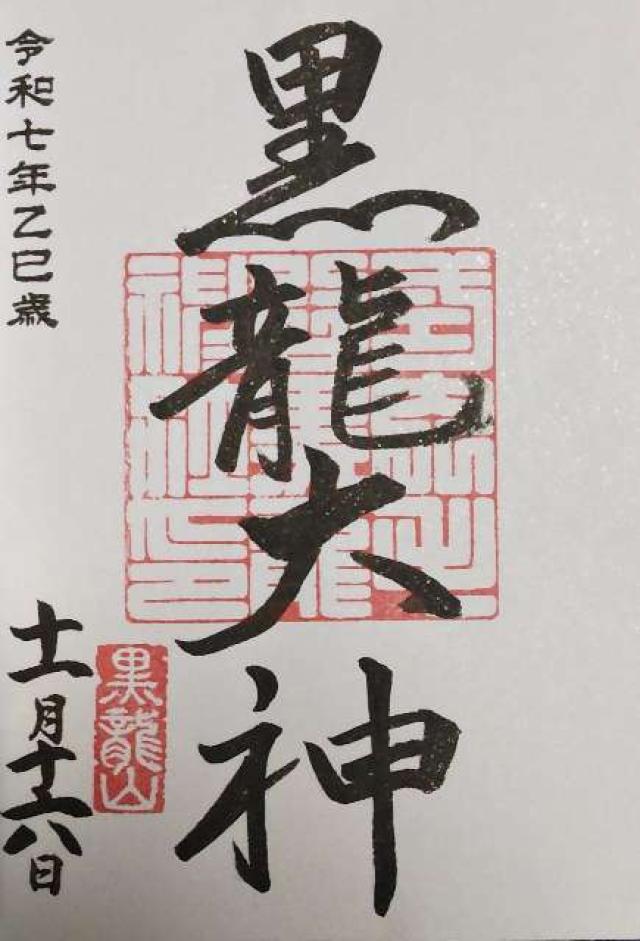 黒龍大神
令和七年乙巳歳
十一月十六日
黒龍山